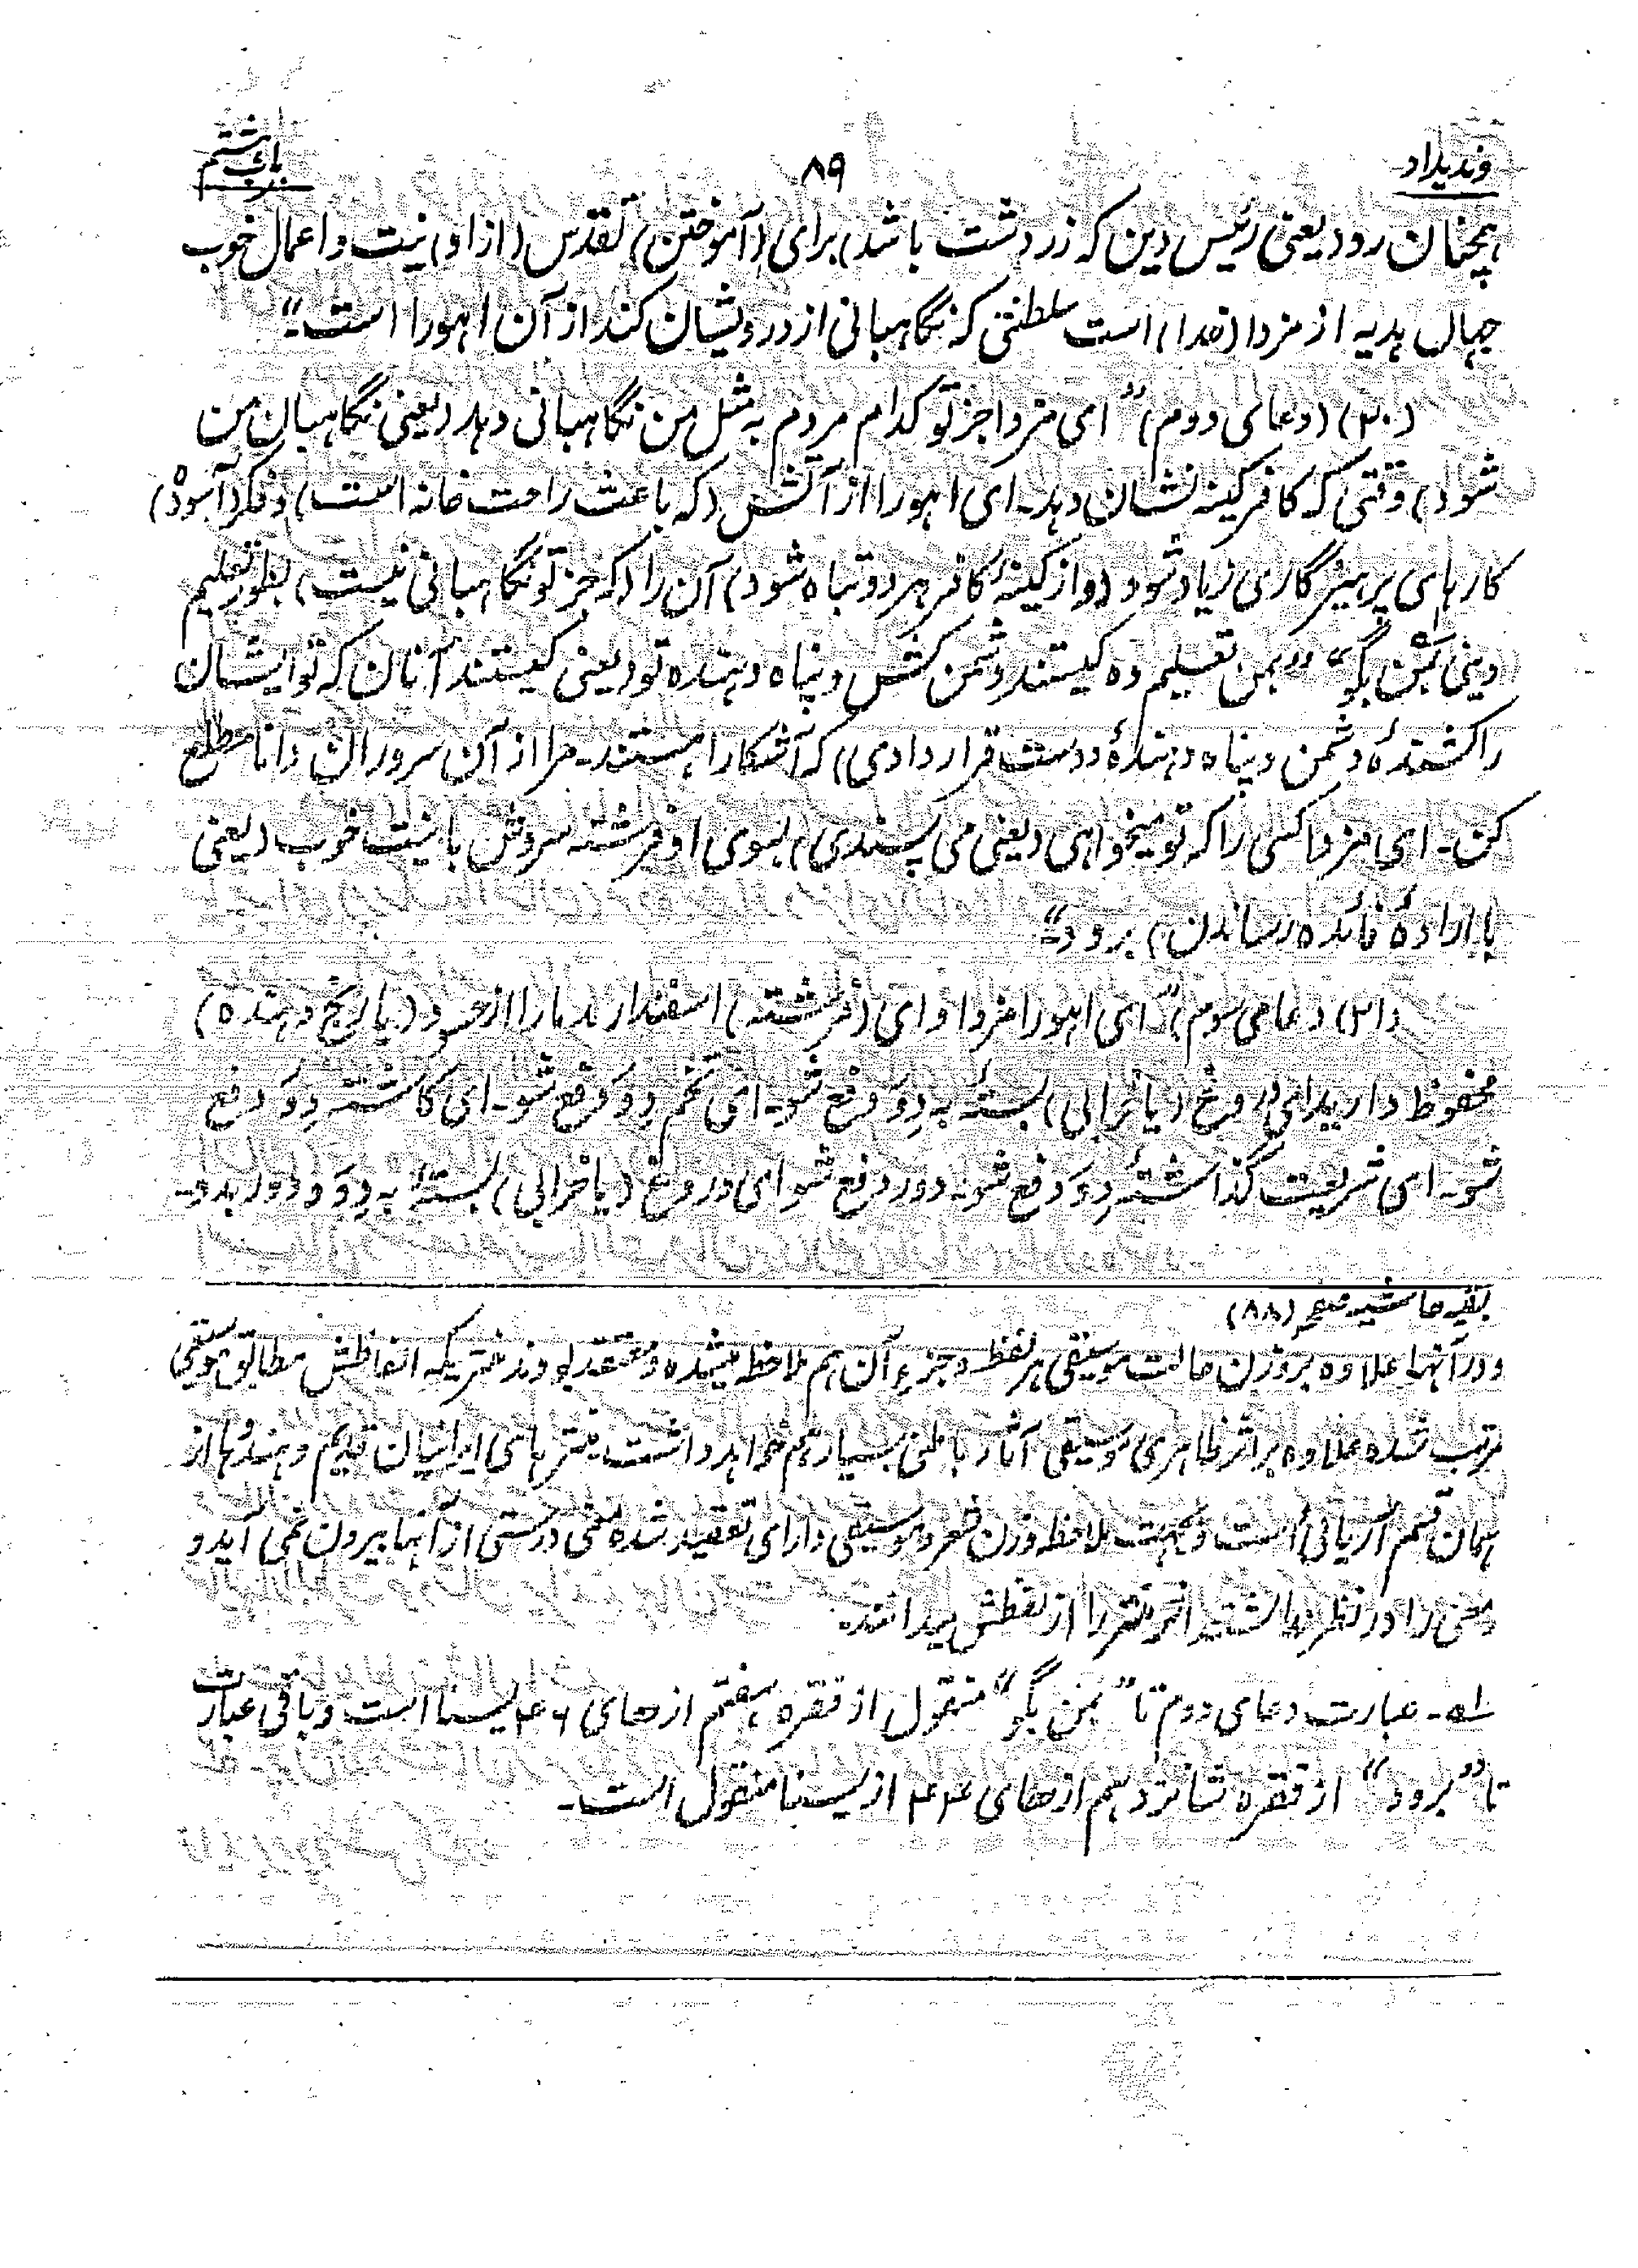 وندیداد ۸۹ باب هشتم
همچنان رود (یعنی رئیس دین که زردشت باشد) برای (آموختن) تقدس (از او) نیت و اعمال خوب
جهال هدیه از مزدا (خدا) است سلطنتی که نگاهبانی از درویشان کند از آن اهورا است ـ“
(۲۰) (دعای دوم) ”ای مزدا جز تو کدام مردم به مثل من نگاهبانی دهد (یعنی نگاهبان من
شود) وقتی که کافر کینه نشان دهد ـ ای اهورا از آتش (که باعث راحت خانه است) و فکر (آسوده)
کارهای پرهیزگاری زیاد شود (و از کینهٔ کافر هر دو تباه شود) آن را (که جز تو نگاهبانی نیست) بطور تعلیم
دینی بمن بگو“ ”بمن تعلیم ده کیستند دشمن کش و پناه دهنده تو (یعنی کیستند آنان که تو ایشان
را کشندهٔ دشمن و پناه دهندهٔ دوست قرار دادی) که آشکارا هستند ـ مرا از آن سروران دانا مطلع
کن ـ ای مزدا کسی را که تو میخواهی (یعنی می پسندی) بسوی او فرشته سروش با نیت خوب (یعنی
با ارادهٔ فائده رساندن) برود ـ“
(۲۱) (دعای سوم) ”ای اهورا مزدا و ای (فرشته) اسفندارمذ ما را از حسود (یا رنج دهنده)
محفوظ دارید ای دروغ (یا خرابی) بستهٔ به دِوَ دفع شو ـ ای تخم دِوَ دفع شو ـ ای کاشتهٔ دِوَ دفع
شو ـ ای شریعت گذاشتهٔ دِوَ دفع شو ـ دور دفع شو ای دروغ (یا خرابی) بستهٔ به دِوَ و دور بدو ـ
بقیه حاشیه صفحه (۸۸)
و در آنها علاوه بر وزن حالت موسیقی هر لفظ و جزء آن هم ملاحظه میشده و معتقد بودند نثریکه الفاظش مطابق موسیقی
مرتب شده علاوه بر اثر ظاهری موسیقی آثار باطنی بسیار هم خواهد داشت منترهای ایرانیان قدیم و هندوها از
همان قسم آریائی است و بجهت ملاحظه وزن شعر و موسیقی دارای تعقید شده معنی درستی از آنها بیرون نمی آید و
معنی را در نظر نداشتند اثر منتر را از لفظش میدانند
له ـ عبارت دعای دوم تا ”بمن بگو“ منقول از فقره هفتم از های ۴۶ یسنا است و باقی عبارت
تا ”برود“ از فقره شانزدهم از های ۴۴ از یسنا منقول است ـ